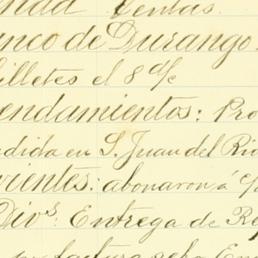 Ventas.
Banco de Durango.
Billetes el 8 %
endamientos: Pro
dida en S. Juan del Rio
vientes: abonaron á
Div.s Entrega de Re
factura